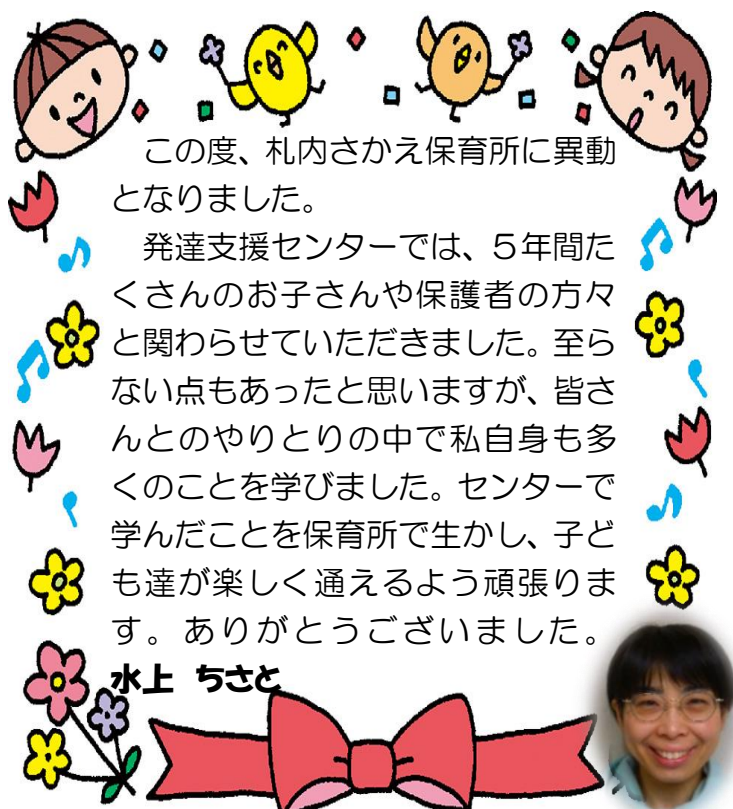 この度、札内さかえ保育所に異動
となりました。
発達支援センターでは、５年間た
くさんのお子さんや保護者の方々
と関わらせていただきました。至ら
ない点もあったと思いますが、皆さ
んとのやりとりの中で私自身も多
くのことを学びました。センターで
学んだことを保育所で生かし、子ど
も達が楽しく通えるよう頑張りま
す。ありがとうございました。
水上 ちさと